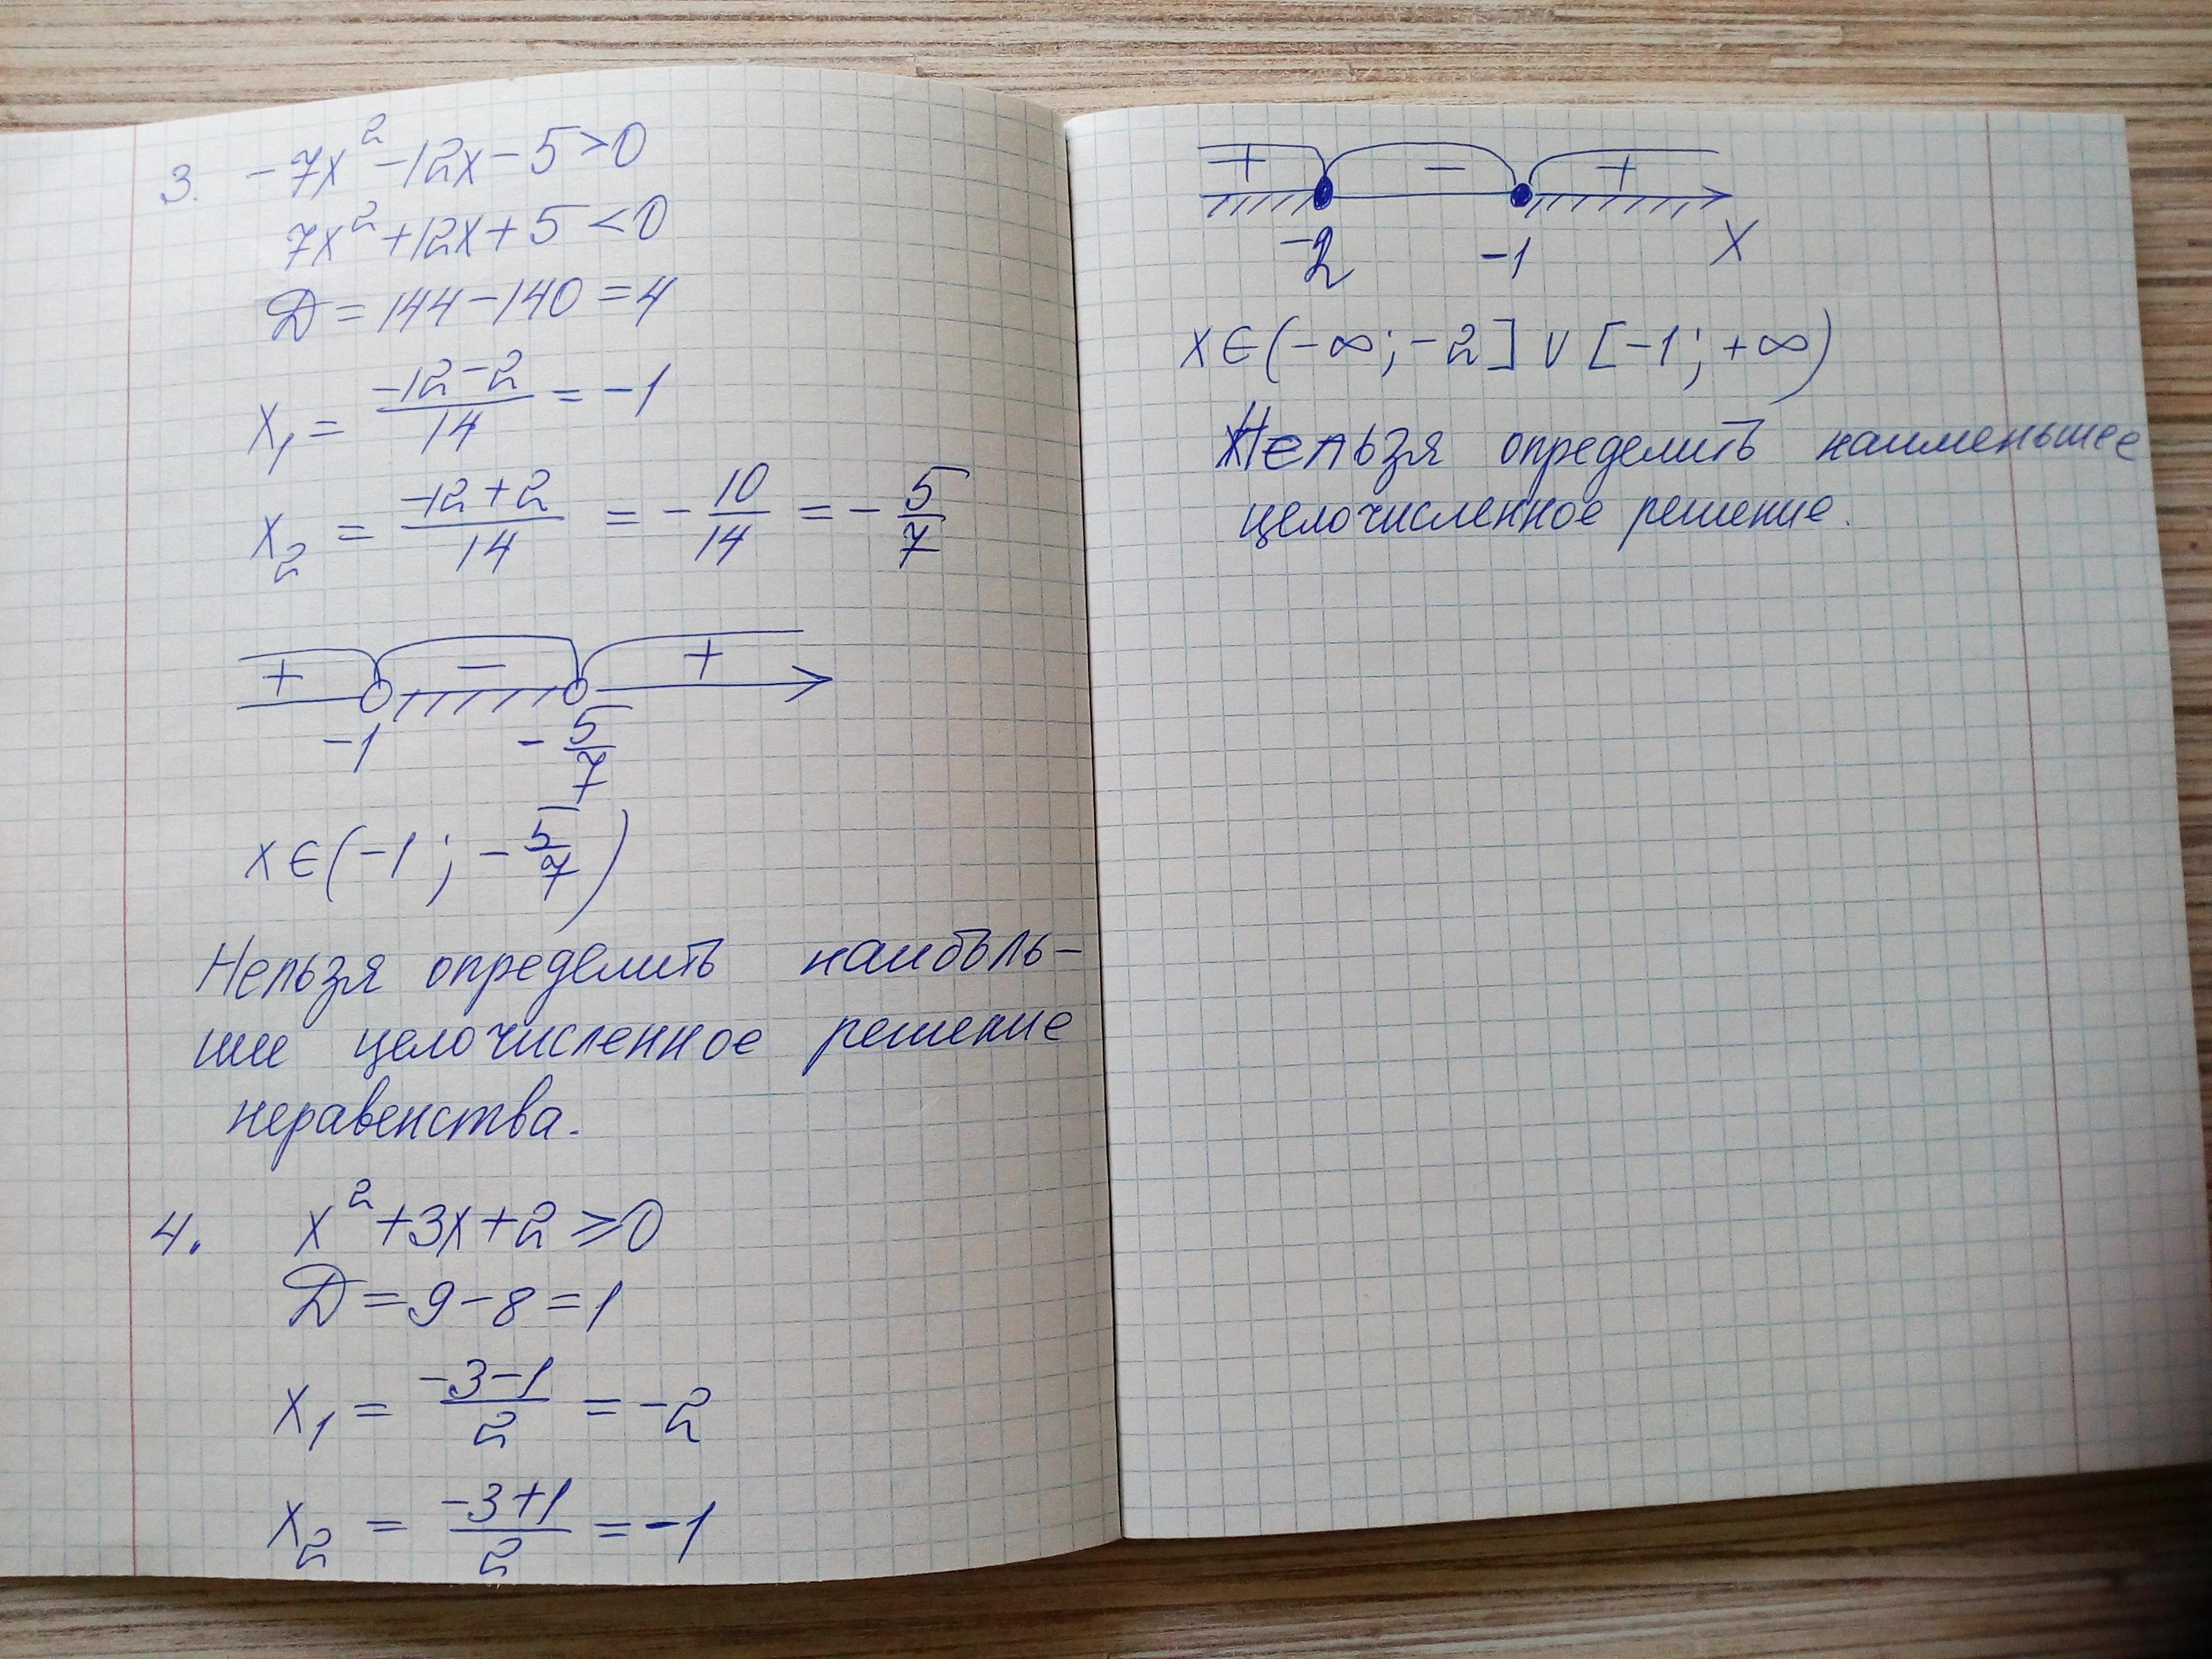 3. -7x² - 12x - 5 > 0
7x² + 12x + 5 < 0
D = 144 - 140 = 4
x₁ = (-12 - 2)/14 = -1
x₂ = (-12 + 2)/14 = -10/14 = -5/7
+ - +
-1 -5/7
x ∈ (-1; -5/7)
Нельзя определить наиболь-
шее целочисленное решение
неравенства.
4. x² + 3x + 2 ≥ 0
D = 9 - 8 = 1
x₁ = (-3 - 1)/2 = -2
x₂ = (-3 + 1)/2 = -1
+ - +
-2 -1 x
x ∈ (-∞; -2] ∪ [-1; +∞)
Нельзя определить наименьшее
целочисленное решение.